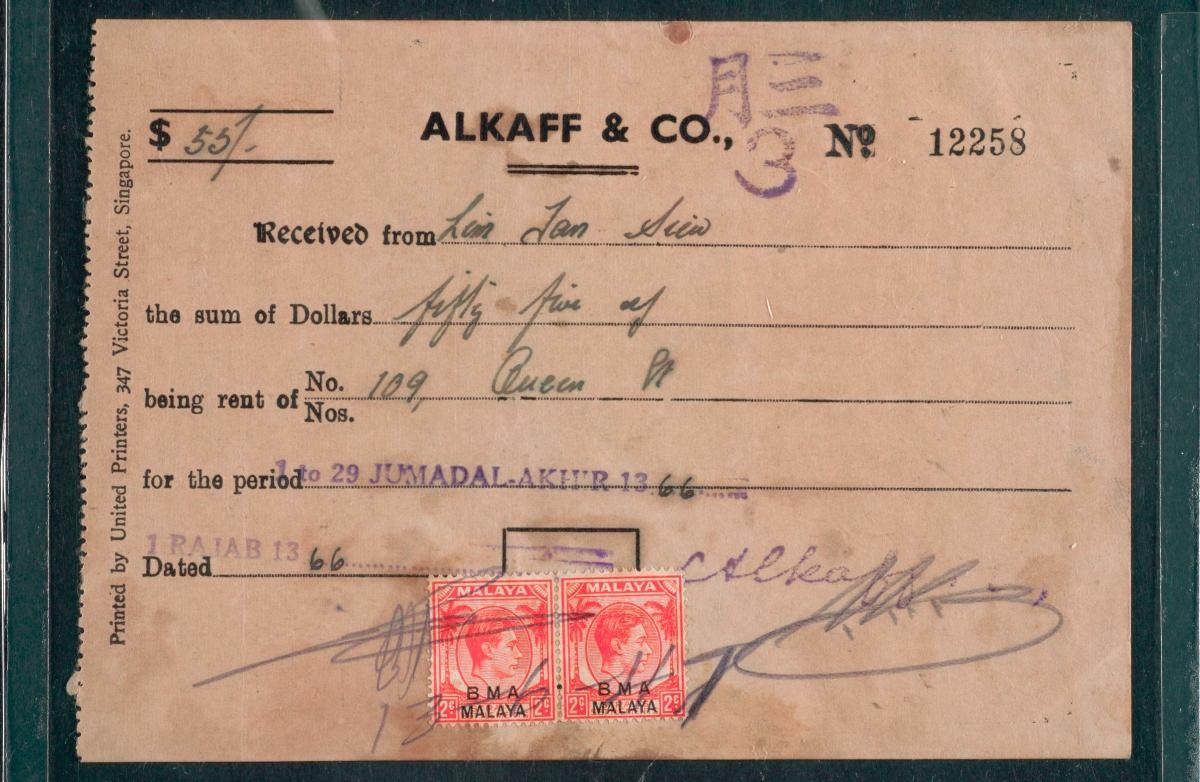 月三
3
$ 55/-
ALKAFF & CO.,
Nº 12258
Received from Lim Tan Siew
the sum of Dollars fifty five of
being rent of No. Nos. 109, Queen St
for the period 1 to 29 JUMADAL-AKHIR 13 66
Dated 1 RAJAB 13 66
CAlkaff
MALAYA MALAYA
BMA BMA
2c MALAYA 2c 2c MALAYA 2c
Printed by United Printers, 347 Victoria Street, Singapore.